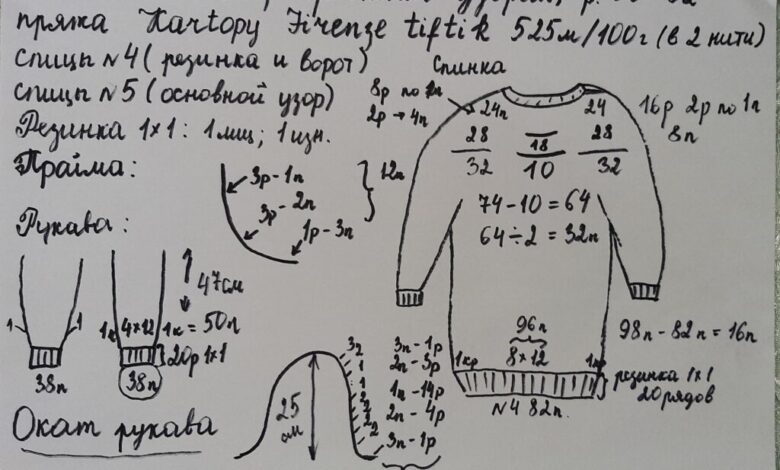 пряжа Kartopu Firenze tiftik 525м/100г (в 2 нити)
спицы №4 (резинка и ворот)
спицы №5 (основной узор)
Резинка 1×1: 1 лиц; 1 изн.
Пройма:
3р-1п
3р-2п
1р-3п
12п
Спинка
8р по
2р → 4п
24п
24
16р 2р по 1п
8п
28
32
18
10
28
32
74-10=64
64÷2=32п
96п
8×12
1кр
1кр
98п-82п=16п
резинка 1×1
20рядов
№4 82п.
Рукава:
47см
1
1
1к
4×12
1к = 50п
20р 1×1
38п
38п
Окат рукава
25
см
3п-1р
2п-3р
1п-14р
2п-4р
3п-1р